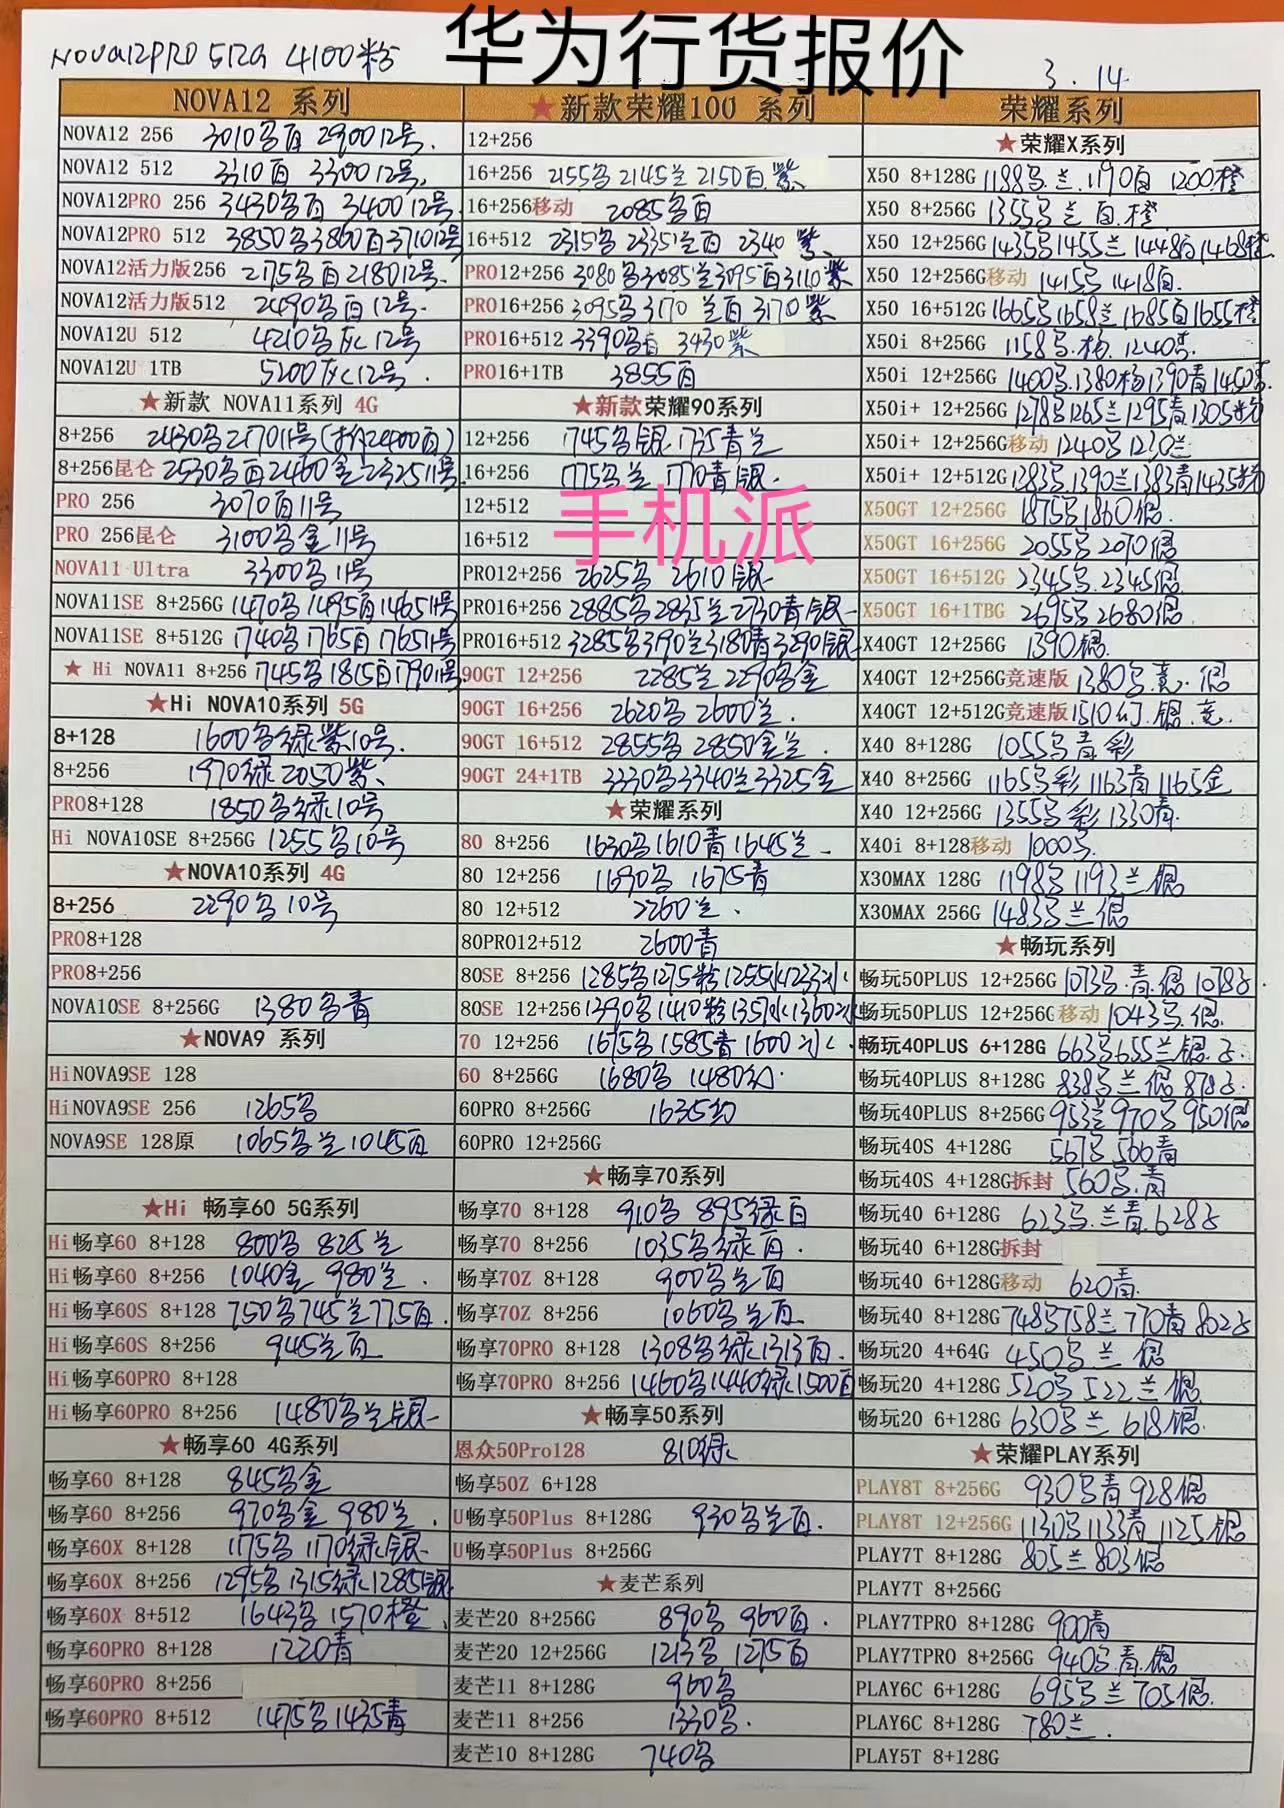 华为行货报价
NOVA12PRO 512G 4100粉
3.14
NOVA12 系列
NOVA12 256 3010名百 2900 12号.
NOVA12 512 3310百 3300 12号.
NOVA12PRO 256 3430名百 3400 12号
NOVA12PRO 512 3850名 3860百 3710 12号
NOVA12活力版256 2175名百 2180 12号.
NOVA12活力版512 2490名百 12号.
NOVA12U 512 4210名灰 12号
NOVA12U 1TB 5200灰 12号.
★新款 NOVA11系列 4G
8+256
8+256昆仑 2530名百 2460金 2325 11号
PRO 256 3070百 11号
PRO 256昆仑 3100名金 11号
NOVA11 Ultra 3300名 11号
NOVA11SE 8+256G 1470名 1495百 1465 11号
NOVA11SE 8+512G 1740名 1765百 1765 11号
★ Hi NOVA11 8+256 1745名 1815百 1790 11号
★Hi NOVA10系列 5G
8+128 1600名绿紫 10号.
8+256 1970绿 2050紫
PRO8+128 1850名绿 10号
Hi NOVA10SE 8+256G 1255名 10号
★NOVA10系列 4G
8+256 2290名 10号
PRO8+128
PRO8+256
NOVA10SE 8+256G 1380名青
★NOVA9 系列
HiNOVA9SE 128
HiNOVA9SE 256 1265名
NOVA9SE 128原 1065名兰 1045百
★Hi 畅享60 5G系列
Hi畅享60 8+128 800名 825兰
Hi畅享60 8+256 1040金 980兰.
Hi畅享60S 8+128 750名 745兰 775百.
Hi畅享60S 8+256 945兰百
Hi畅享60PRO 8+128
Hi畅享60PRO 8+256 1480名兰银
★畅享60 4G系列
畅享60 8+128 845名金
畅享60 8+256 970名金 980兰.
畅享60X 8+128 1175名 1170绿银
畅享60X 8+256 1295名 1315绿 1285银
畅享60X 8+512 1643名 1570橙.
畅享60PRO 8+128 1220青
畅享60PRO 8+256
畅享60PRO 8+512 1475名 1435青
★新款荣耀100 系列
12+256
16+256 2155名 2145兰 2150百.紫
16+256移动 2085名百
16+512 2315名 2335兰百 2340 紫
PRO12+256 3080名 3085兰 3095百 3110紫
PRO16+256 3095名 3170 兰百 3170紫
PRO16+512 3390名百 3430紫
PRO16+1TB 3855百
★新款荣耀90系列
12+256 1745名银. 1735青兰
16+256 1775名兰 1770青银.
12+512
16+512
手机派
PRO12+256 2625名 2610银
PRO16+256 2885名 2835兰 2730青银
PRO16+512 3285名 3190兰 3180青 3290银
90GT 12+256 2285兰 2290名金
90GT 16+256 2620名 2600兰.
90GT 16+512 2855名 2850金兰.
90GT 24+1TB 3330名 3340兰 3325金
★荣耀系列
80 8+256 1630名 1610青 1645兰
80 12+256 1690名 1675青
80 12+512 2260兰.
80PRO12+512 2600青
80SE 8+256 1285名 1275粉 1255水 1233冰
80SE 12+256 1390名 1410粉 1357水 1360冰
70 12+256 1675名 1585青 1600冰.
60 8+256G 1680名 1480幻.
60PRO 8+256G 1635幻
60PRO 12+256G
★畅享70系列
畅享70 8+128 910名 895绿百
畅享70 8+256 1035名绿百.
畅享70Z 8+128 900名兰百
畅享70Z 8+256 1060名兰百
畅享70PRO 8+128 1308名绿 1313百.
畅享70PRO 8+256 1460名 1440绿 1500百
★畅享50系列
恩众50Pro128 810绿
畅享50Z 6+128
U畅享50Plus 8+128G 930名兰百.
U畅享50Plus 8+256G
★麦芒系列
麦芒20 8+256G 890名 960百.
麦芒20 12+256G 1213名 1275百
麦芒11 8+128G 960名
麦芒11 8+256 1330名.
麦芒10 8+128G 740名
荣耀系列
★荣耀X系列
X50 8+128G 1188名.兰. 1190百 1200橙
X50 8+256G 1355名兰百.橙
X50 12+256G 1435名 1455兰 1448百 1468橙
X50 12+256G移动 1415名 1418百.
X50 16+512G 1665名 1658兰 1685百 1655橙
X50i 8+256G
X50i 12+256G
X50i+ 12+256G 1278名 1265兰 1295青 1305粉
X50i+ 12+256G移动 1240名 1230兰
X50i+ 12+512G 1383名 1390兰 1383青 1435粉
X50GT 12+256G 1875名 1860银.
X50GT 16+256G 2055名 2070银
X50GT 16+512G 2345名. 2345银
X50GT 16+1TBG 2695名 2680银
X40GT 12+256G 1390银.
X40GT 12+256G竞速版 1380名.竞.银
X40GT 12+512G竞速版 1510幻.银.竞.
X40 8+128G 1055名青彩
X40 8+256G 1165名彩 1163青 1165金
X40 12+256G 1355名彩 1330青.
X40i 8+128移动 1000名.
X30MAX 128G 1198名 1193兰银
X30MAX 256G 1483名兰银
★畅玩系列
畅玩50PLUS 12+256G 1073名.青.银
畅玩50PLUS 12+256G移动 1043名.银.
畅玩40PLUS 6+128G 663名 655兰银
畅玩40PLUS 8+128G 838名兰银
畅玩40PLUS 8+256G 953兰 970名 950银
畅玩40S 4+128G 567名 566青
畅玩40S 4+128G拆封 560名.青
畅玩40 6+128G 623名.兰青
畅玩40 6+128G拆封
畅玩40 6+128G移动 620青.
畅玩40 8+128G 748名 758兰 770青
畅玩20 4+64G 450名兰银
畅玩20 4+128G 520名 522兰银
畅玩20 6+128G 630名兰 618银.
★荣耀PLAY系列
PLAY8T 8+256G 930名青 928银
PLAY8T 12+256G 1130名 1133青 1125银
PLAY7T 8+128G 805兰 803银
PLAY7T 8+256G
PLAY7TPRO 8+128G 900青
PLAY7TPRO 8+256G 940名.青.银
PLAY6C 6+128G 695名兰 705银.
PLAY6C 8+128G 780兰.
PLAY5T 8+128G